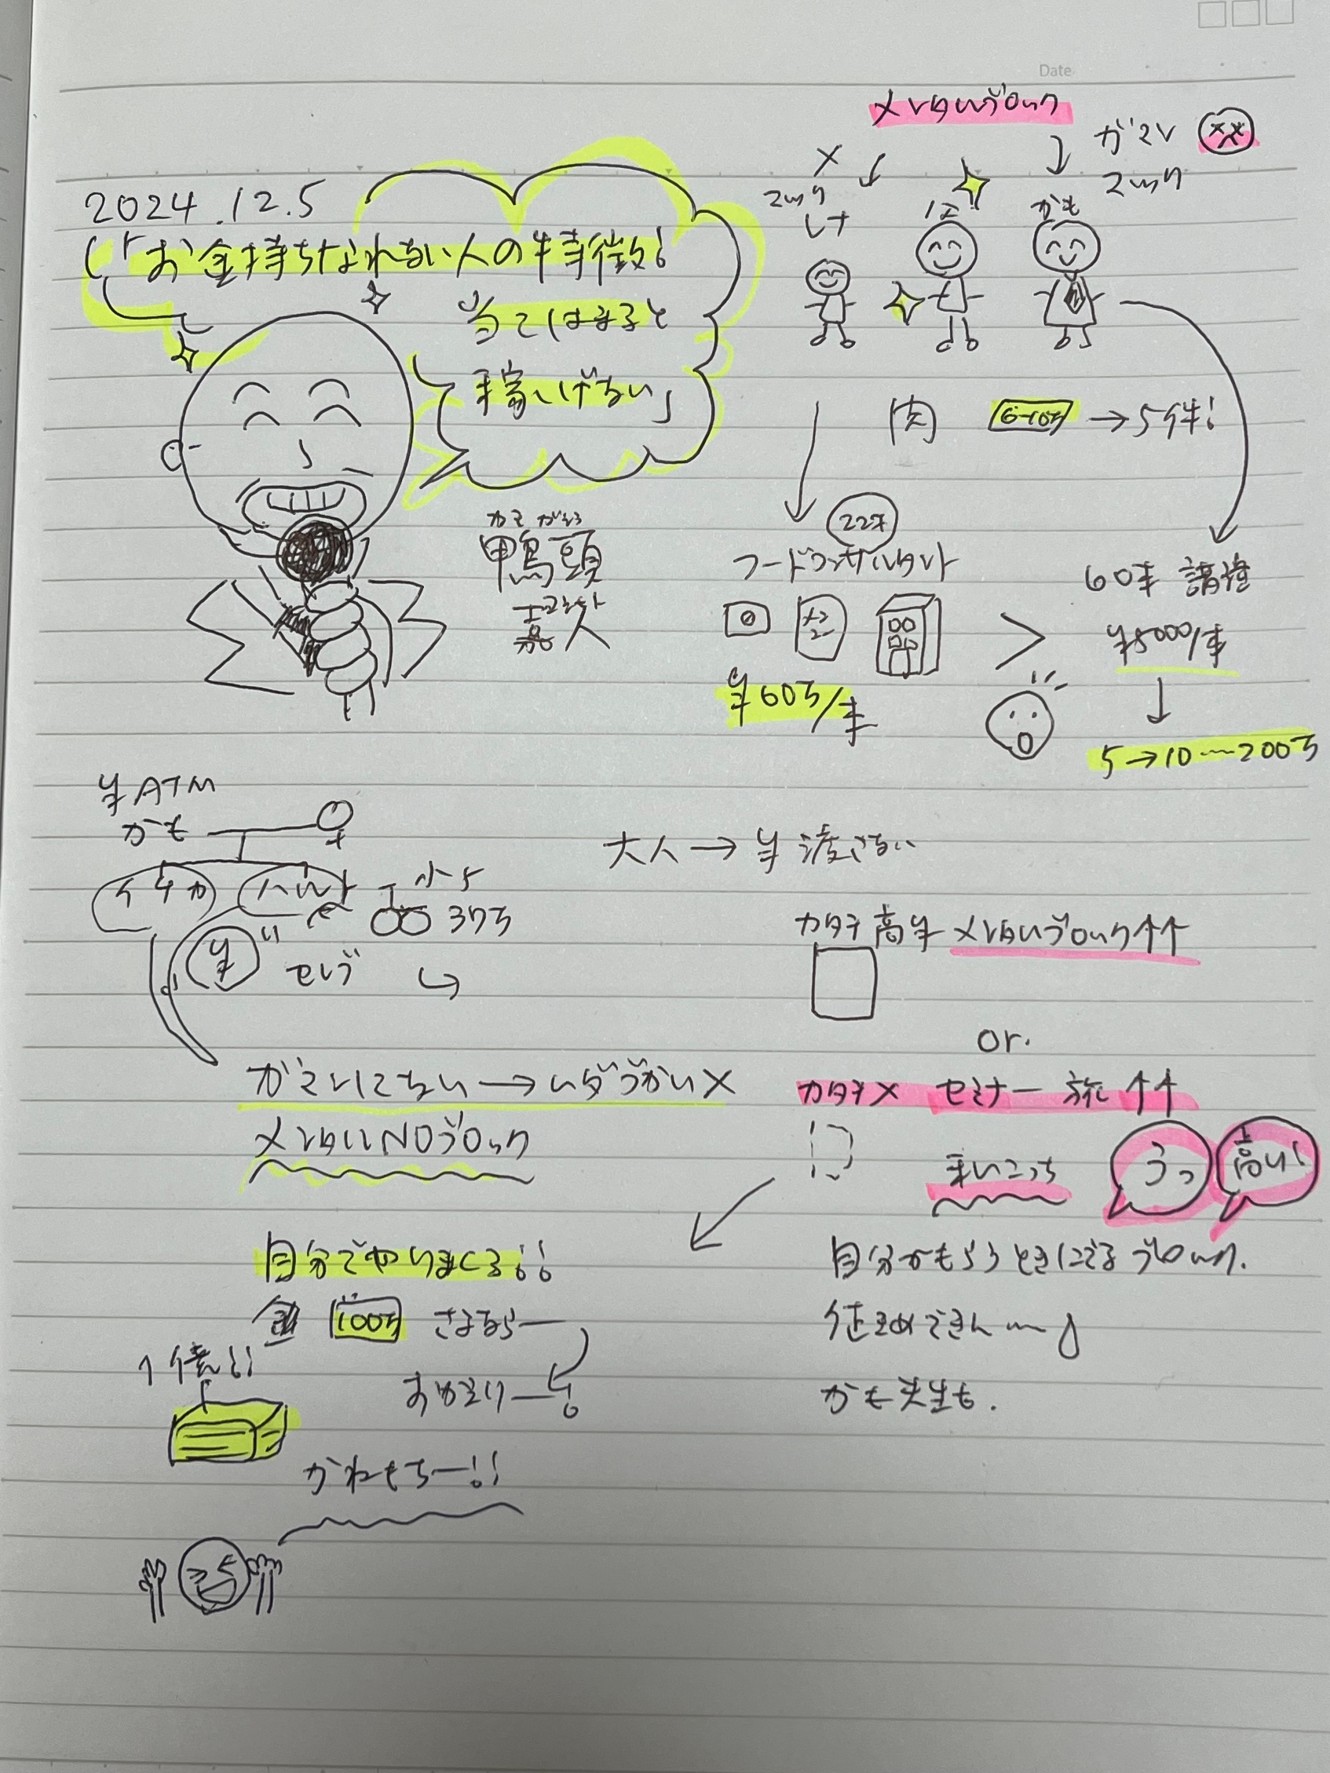 Date
メンタルブロック
ガマン
×
2024.12.5
「お金持ちなれない人の特徴!
当てはまると
稼げない」
かも
肉
→5件!
かも がしら
鴨頭
よしひと
嘉人
22才
フードコンサルタント
¥60万/本
>
60本 講演
¥5000/本
5→10〜200万
¥ATM
かも
イチカ
ハルト
小5
37万
¥
セレブ
大人→¥渡さない
カタチ 高¥ メンタルブロック↑↑
or.
ガマンしてない→ムダづかい×
メンタルNOブロック
カタチ× セミナー 旅↑↑
まいこっち
うっ
高い!
自分でやりまくる!!
100万 さよならー
1億!!
おかえりー!
かねもちー!!
自分がもらうときにでるブロック.
かも先生も.